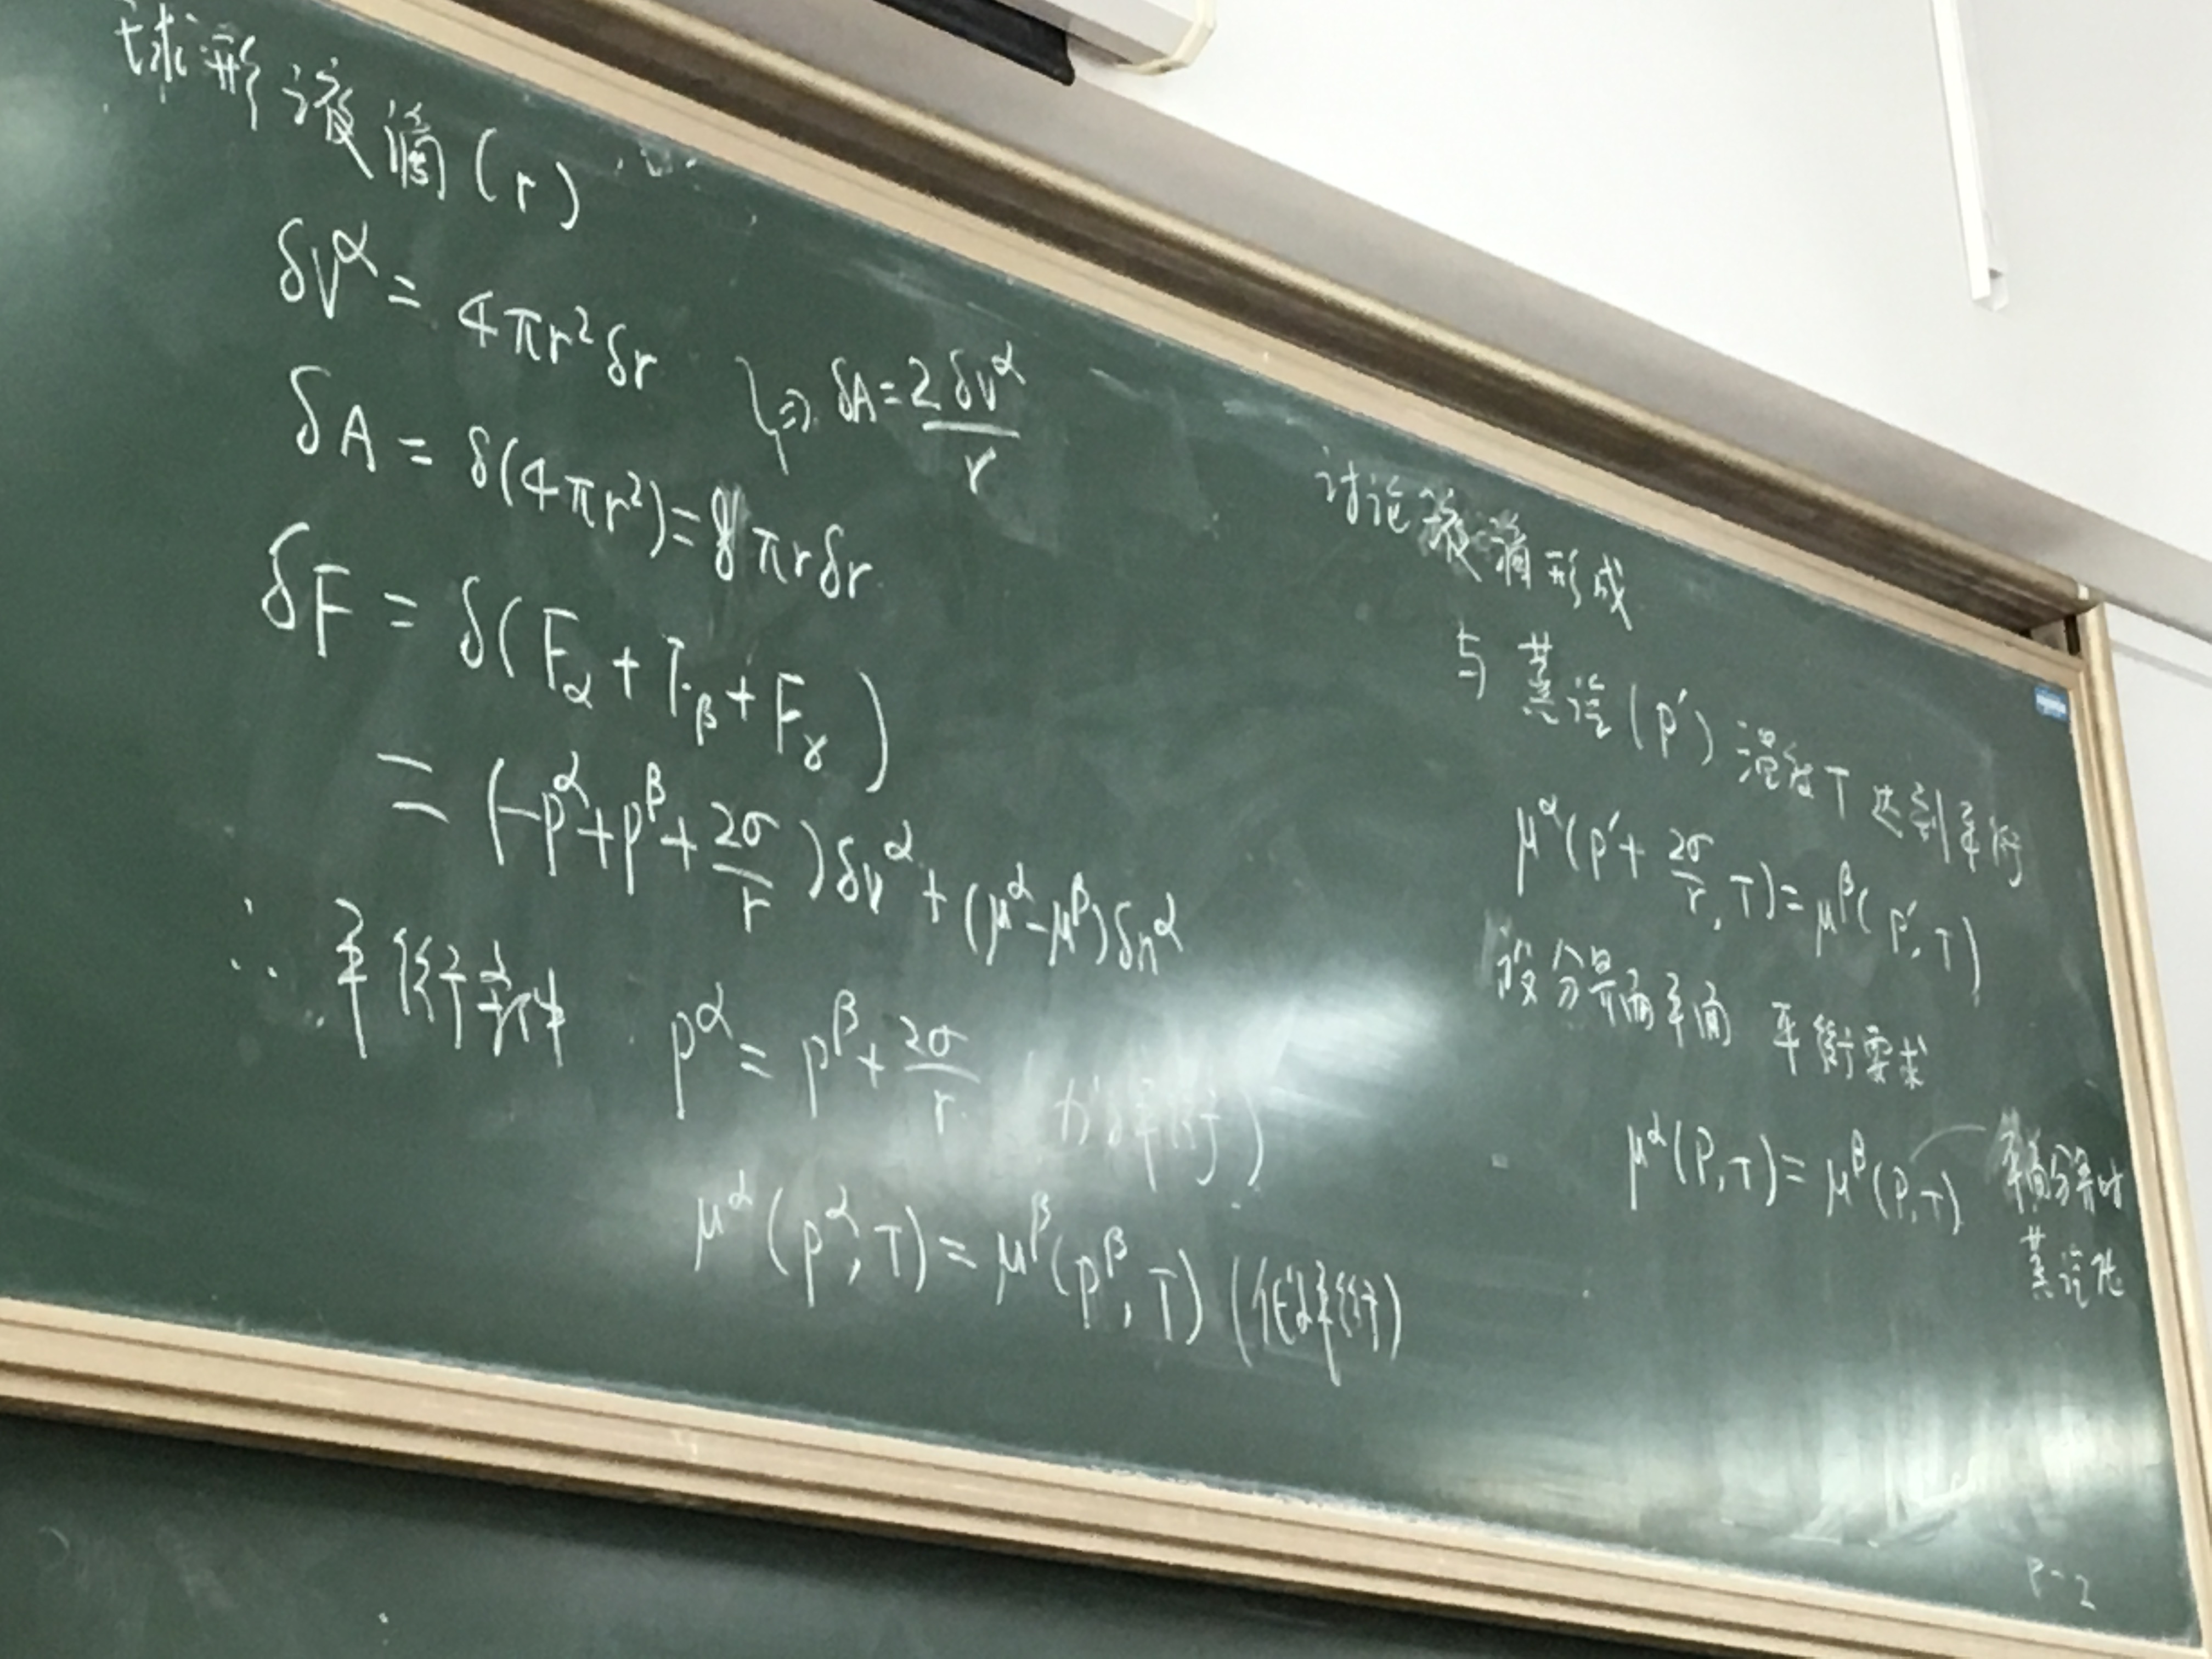 球形液滴(r)
δV^α = 4πr²δr
δA = δ(4πr²) = 8πrδr
} ⇒ δA = 2δV^α / r
δF = δ(F_α + F_β + F_γ)
= (-p^α + p^β + 2σ/r)δV^α + (μ^α - μ^β)δn^α
∴ 平衡条件 p^α = p^β + 2σ/r (力学平衡)
μ^α(p^α, T) = μ^β(p^β, T) (化学平衡)
讨论液滴形成
与蒸汽(p′) 温度T 达到平衡
μ^α(p′ + 2σ/r, T) = μ^β(p′, T)
设分界面平面 平衡要求
μ^α(P, T) = μ^β(P, T)
平面分界时
蒸汽压
P-2